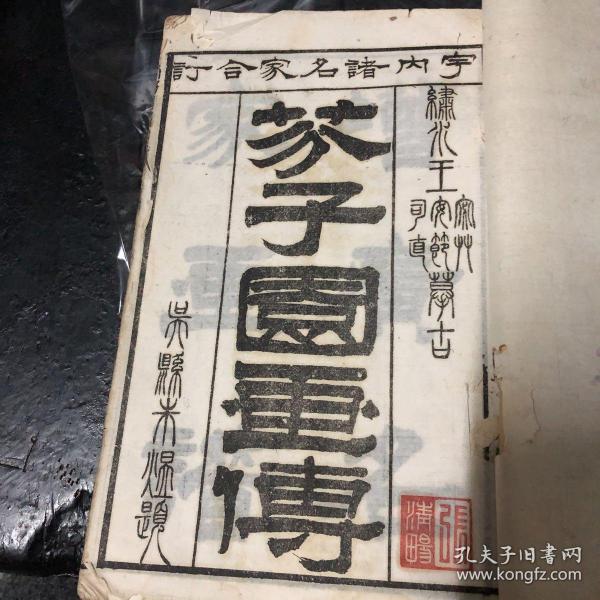 宇内諸名家合訂
繡水王
宓艸
安節
司直
摹古
芥子園畫傳
吳縣朱題
張
孔夫子旧书网
www.kongfz.com